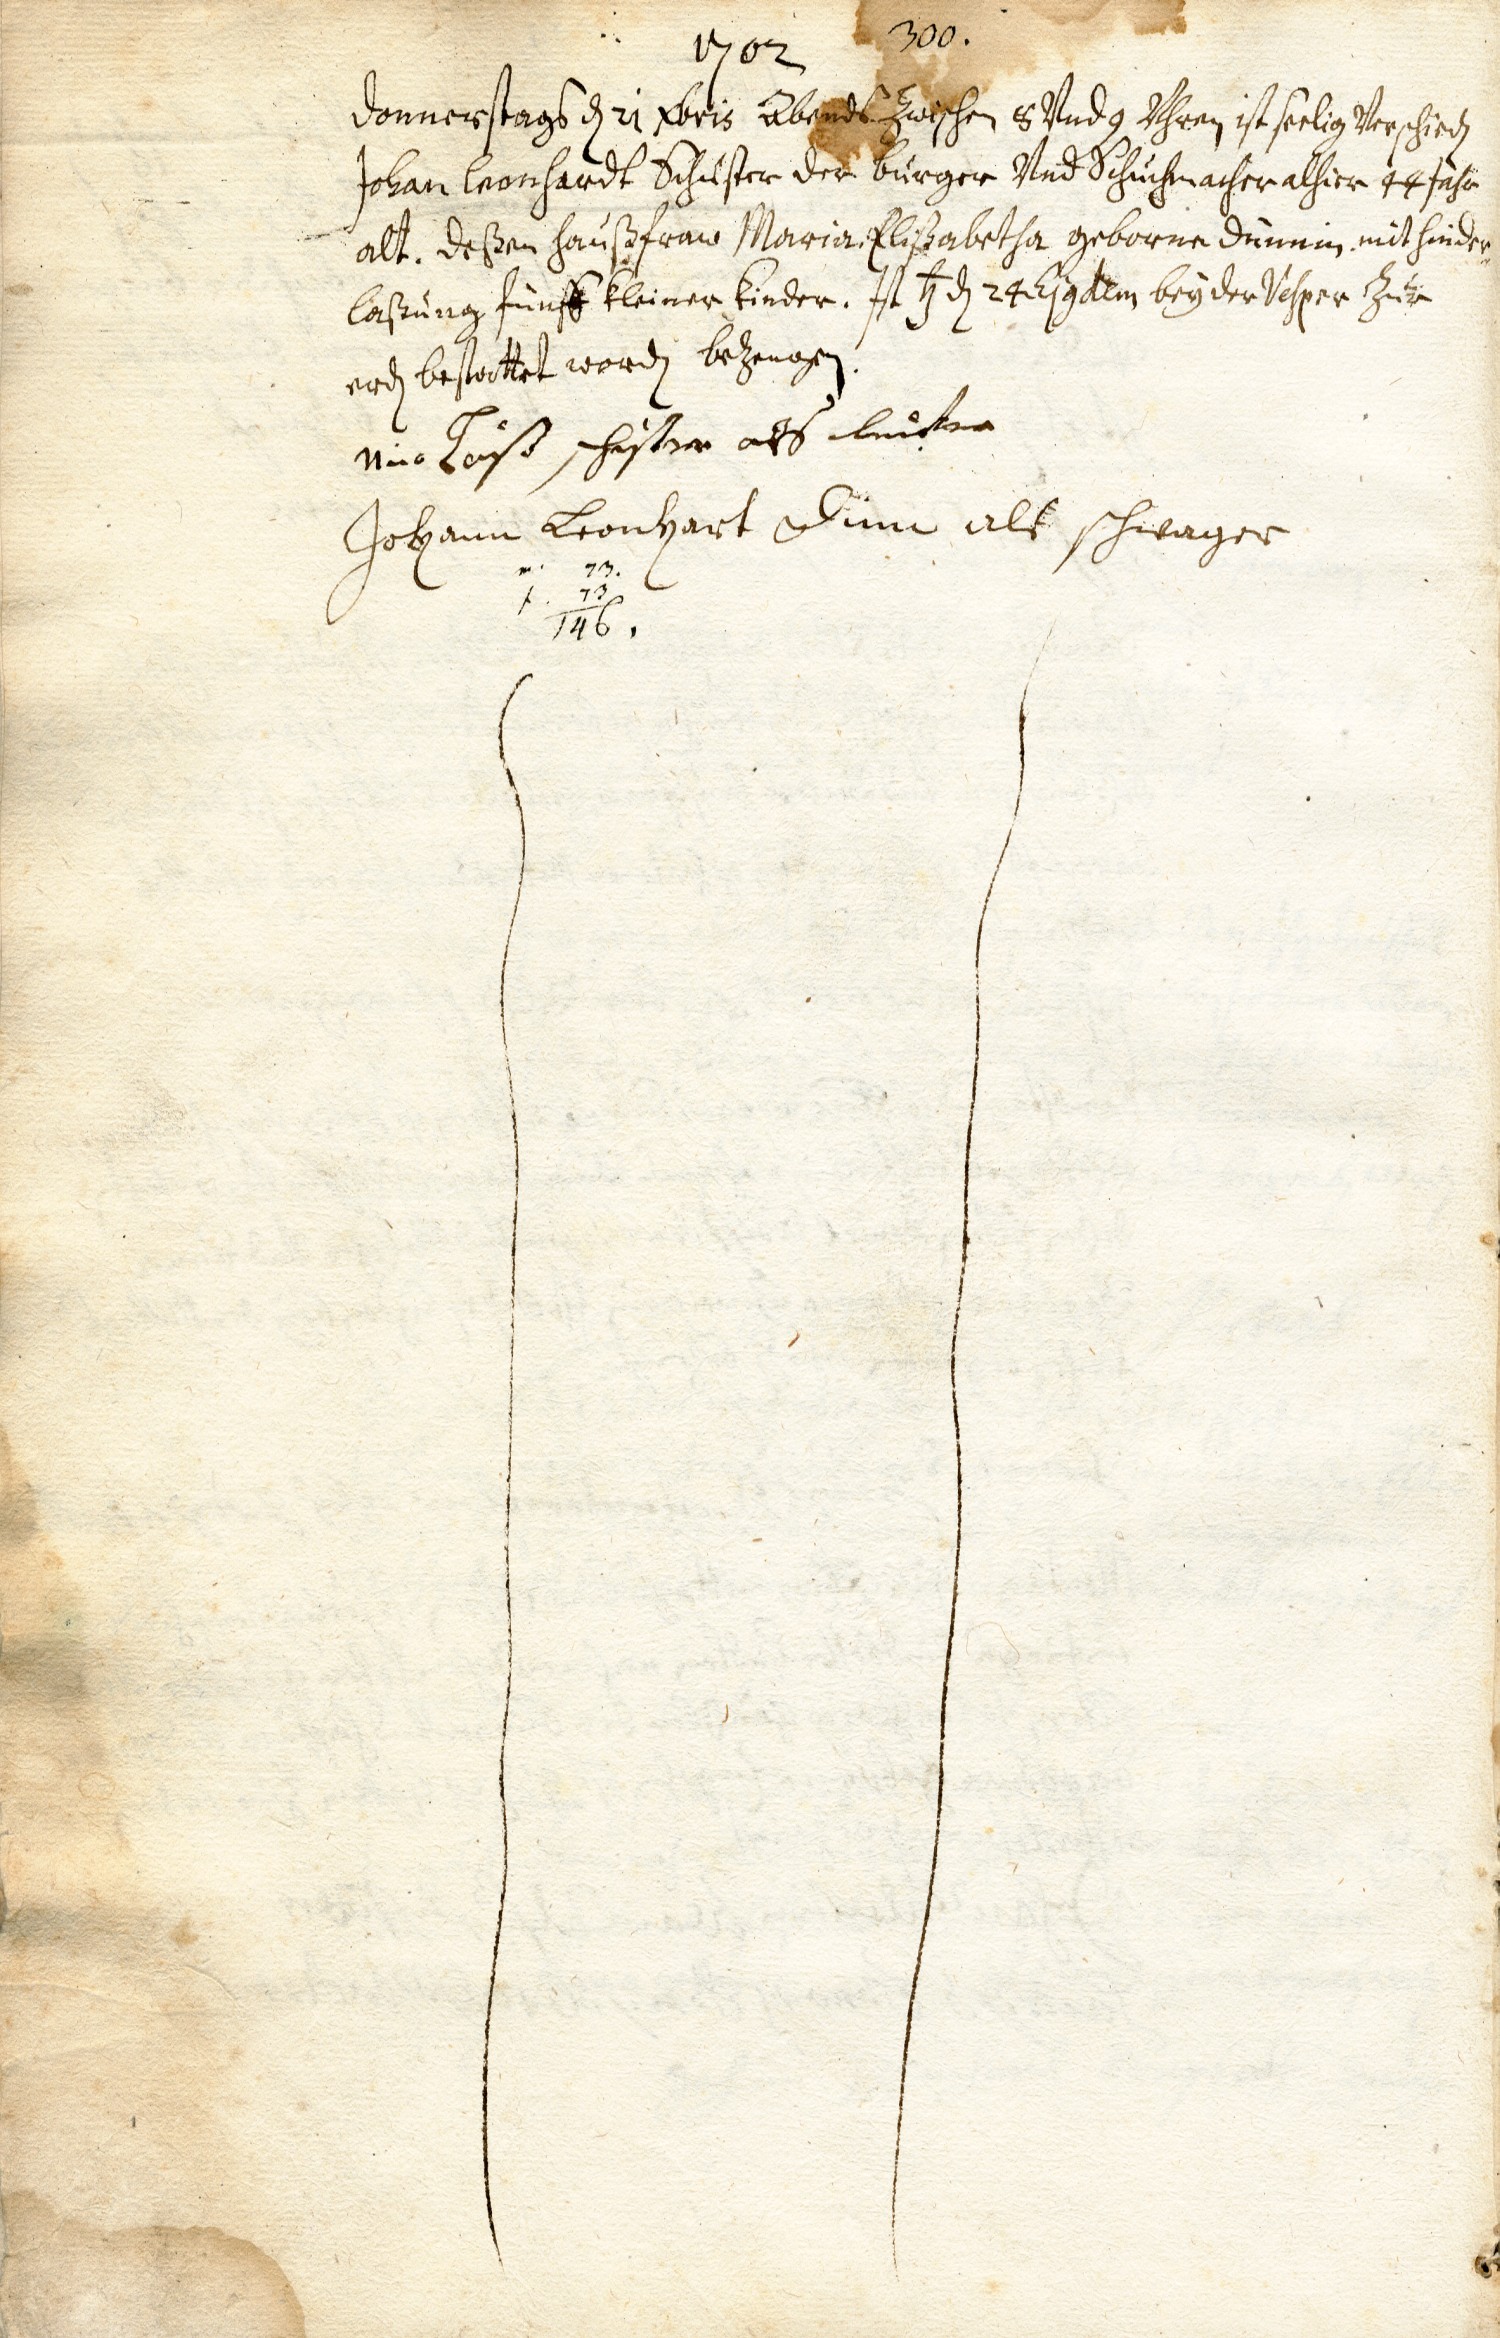 1702
300.
Donnerstags d 21 Xbris Abends Zwischen 8 Vnd 9 Vhren ist seelig Verschied
Johan Leonhardt Schuster der burger Vnd Schuchmacher alhier 44 Jahr
alt. deßen haußfraw Maria Elisabetha geborne Dunnin mit hinder-
laßung funff kleiner kinder. Ist d 24 bey der Vesper Zur
erd bestattet word bezeugen.
schuster als
Johann Leonhart Dunn alß schwager
m. 73.
f. 73
146.